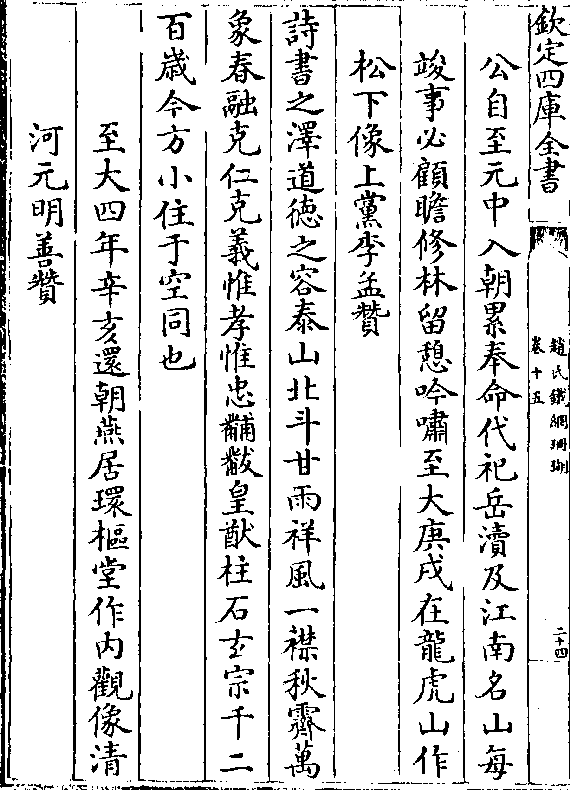 欽定四庫全書
趙氏鐵網珊瑚
卷十五
二十四
公自至元中入朝累奉命代祀岳瀆及江南名山每
竣事必顧瞻修林留憩吟嘯至大庚戌在龍虎山作
松下像上黨李孟贊
詩書之澤道德之容泰山北斗甘雨祥風一襟秋霽萬
象春融克仁克義惟孝惟忠黼黻皇猷柱石玄宗千二
百歲今方小住于空同也
至大四年辛亥還朝燕居環樞堂作内觀像清
河元明善贊